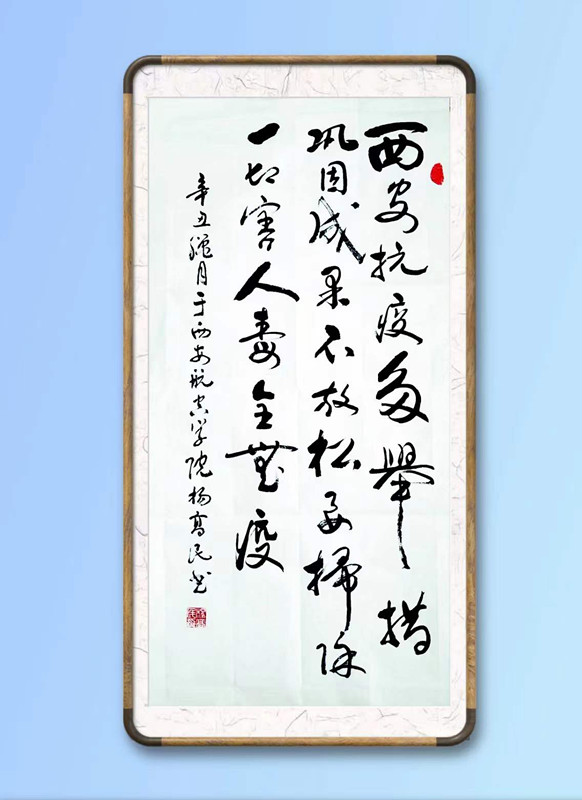 西安抗疫多舉措
巩固成果不放松要掃除
一切害人毒全無疫
辛丑臘月于西安航空学院杨高民书